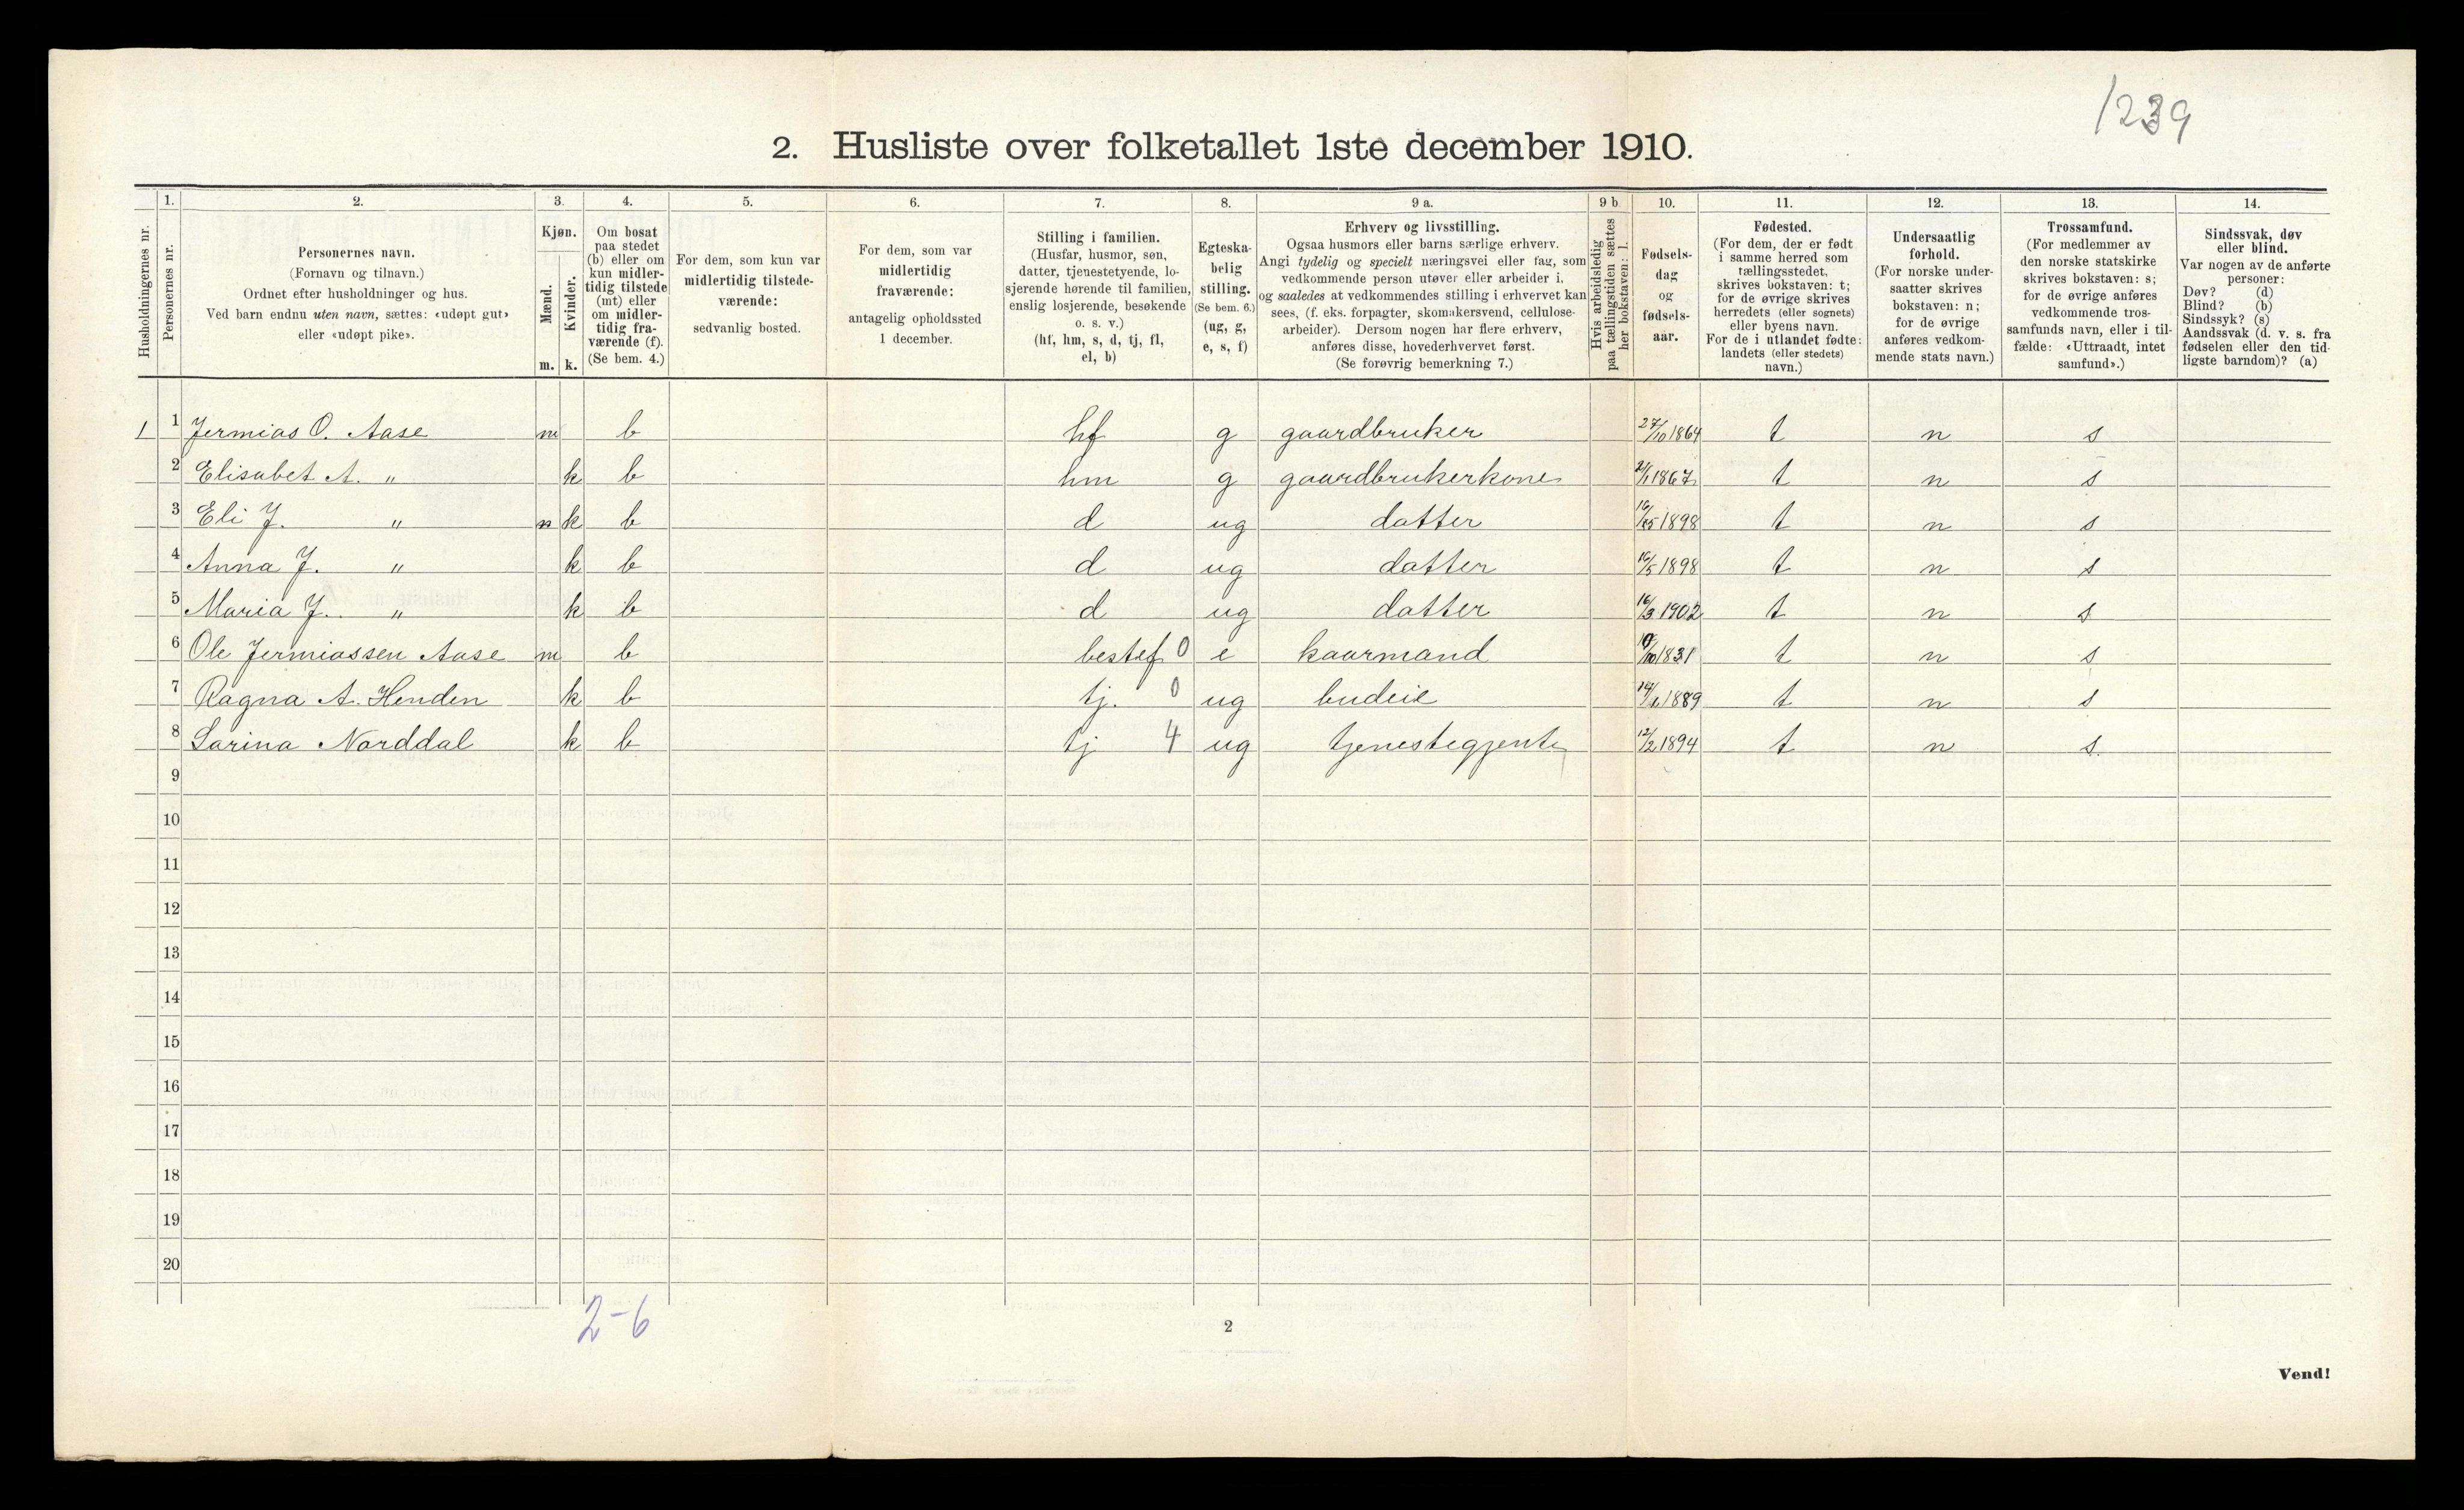 1239
2. Husliste over folketallet 1ste december 1910.
Husholdningernes nr.
1.
Personernes nr.
2.
Personernes navn.
(Fornavn og tilnavn.)
Ordnet efter husholdninger og hus.
Ved barn endnu uten navn, sættes: «udøpt gut»
eller «udøpt pike».
3.
Kjøn.
Mænd.
m.
Kvinder.
k.
4.
Om bosat
paa stedet
(b) eller om
kun midler-
tidig tilstede
(mt) eller
om midler-
tidig fra-
værende (f).
(Se bem. 4.)
5.
For dem, som kun var
midlertidig tilstede-
værende:
sedvanlig bosted.
6.
For dem, som var
midlertidig
fraværende:
antagelig opholdssted
1 december.
7.
Stilling i familien.
(Husfar, husmor, søn,
datter, tjenestetyende, lo-
sjerende hørende til familien,
enslig losjerende, besøkende
o. s. v.)
(hf, hm, s, d, tj, fl,
el, b)
8.
Egteska-
belig
stilling.
(Se bem. 6.)
(ug, g,
e, s, f)
9 a.
Erhverv og livsstilling.
Ogsaa husmors eller barns særlige erhverv.
Angi tydelig og specielt næringsvei eller fag, som
vedkommende person utøver eller arbeider i,
og saaledes at vedkommendes stilling i erhvervet kan
sees, (f. eks. forpagter, skomakersvend, cellulose-
arbeider). Dersom nogen har flere erhverv,
anføres disse, hovederhvervet først.
(Se forøvrig bemerkning 7.)
9 b
Hvis arbeidsledig
paa tællingstiden sættes
her bokstaven: l.
10.
Fødsels-
dag
og
fødsels-
aar.
11.
Fødested.
(For dem, der er født
i samme herred som
tællingsstedet,
skrives bokstaven: t;
for de øvrige skrives
herredets (eller sognets)
eller byens navn.
For de i utlandet fødte:
landets (eller stedets)
navn.)
12.
Undersaatlig
forhold.
(For norske under-
saatter skrives
bokstaven: n;
for de øvrige
anføres vedkom-
mende stats navn.)
13.
Trossamfund.
(For medlemmer av
den norske statskirke
skrives bokstaven: s;
for de øvrige anføres
vedkommende tros-
samfunds navn, eller i til-
fælde: «Uttraadt, intet
samfund».)
14.
Sindssvak, døv
eller blind.
Var nogen av de anførte
personer:
Døv? (d)
Blind? (b)
Sindssyk? (s)
Aandssvak (d. v. s. fra
fødselen eller den tid-
ligste barndom)? (a)
1 1 Jermias O. Aase m b hf g gaardbruker 27/10 1864 t n s
2 Elisabet A. " k b hm g gaardbrukerkone 2/1 1867 t n s
3 Eli J. " k b d ug datter 16/5 1898 t n s
4 Anna J. " k b d ug datter 16/5 1898 t n s
5 Maria J. " k b d ug datter 16/3 1902 t n s
6 Ole Jermiassen Aase m b bestef 0 e kaarmand 1831 t n s
7 Ragna A. Henden k b tj. 0 ug budeie 1889 t n s
8 Sarina Norddal k b tj 4 ug tjenestegjente 12/2 1894 t n s
9
10
11
12
13
14
15
16
17
18
19
20
2-6
2
Vend!